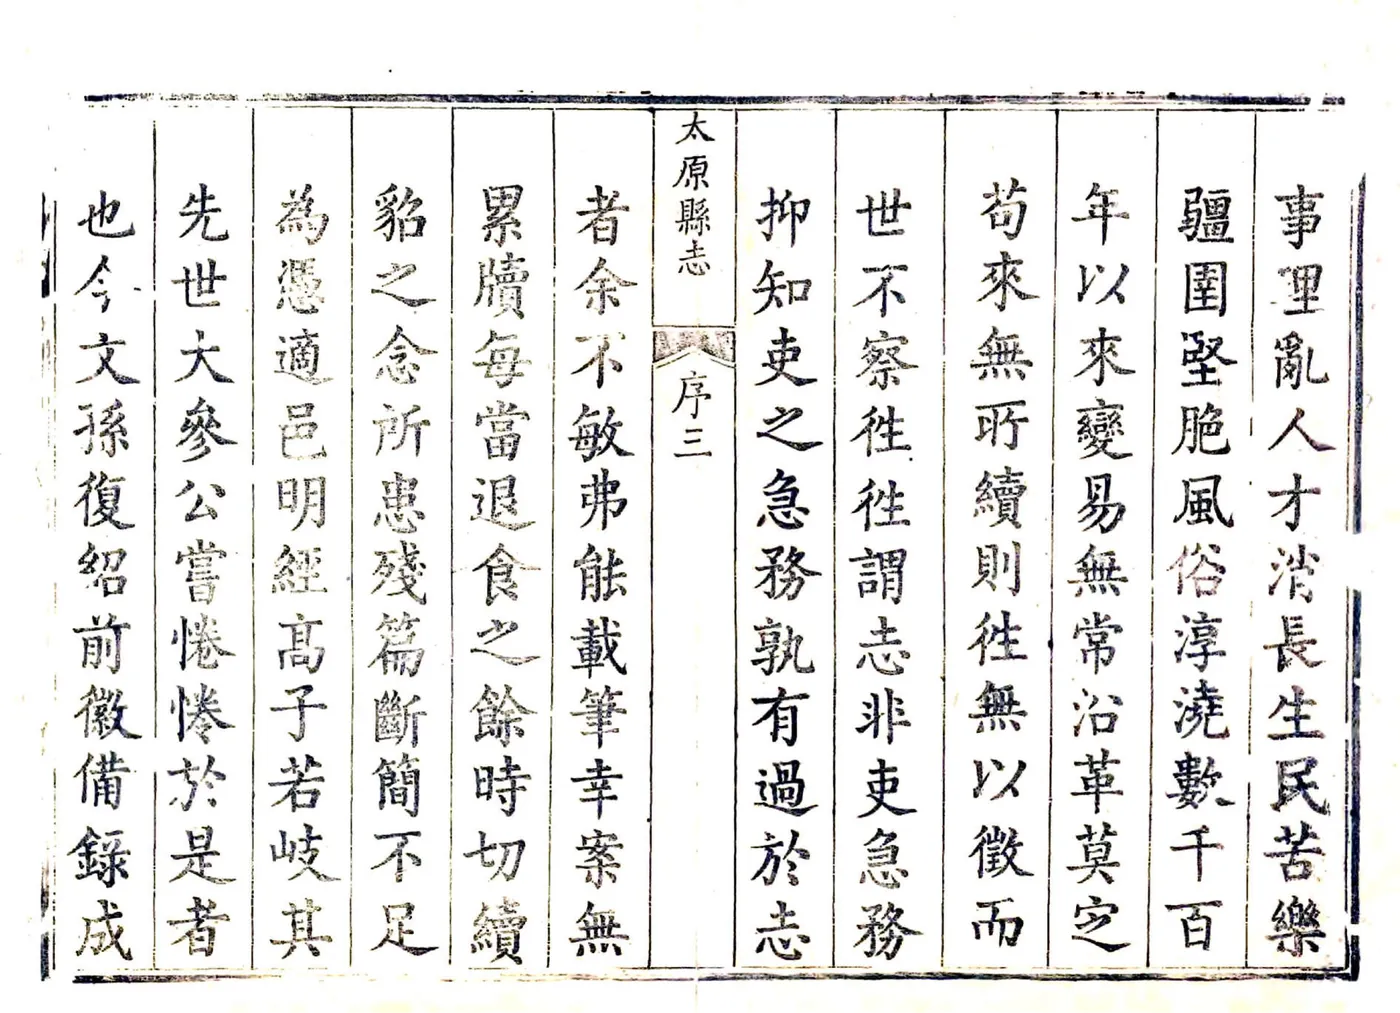 事理亂人才消長生民苦樂
疆圉堅脆風俗淳澆數千百
年以來變易無常沿革莫定
苟來無所續則徃無以徵而
世不察徃徃謂志非吏急務
抑知吏之急務孰有過於志
太原縣志
序三
者余不敏弗能載筆幸案無
累牘每當退食之餘時切續
貂之念所患殘篇斷簡不足
為憑適邑明經高子若岐其
先世大參公嘗惓惓於是者
也今文孫復紹前徽備錄成